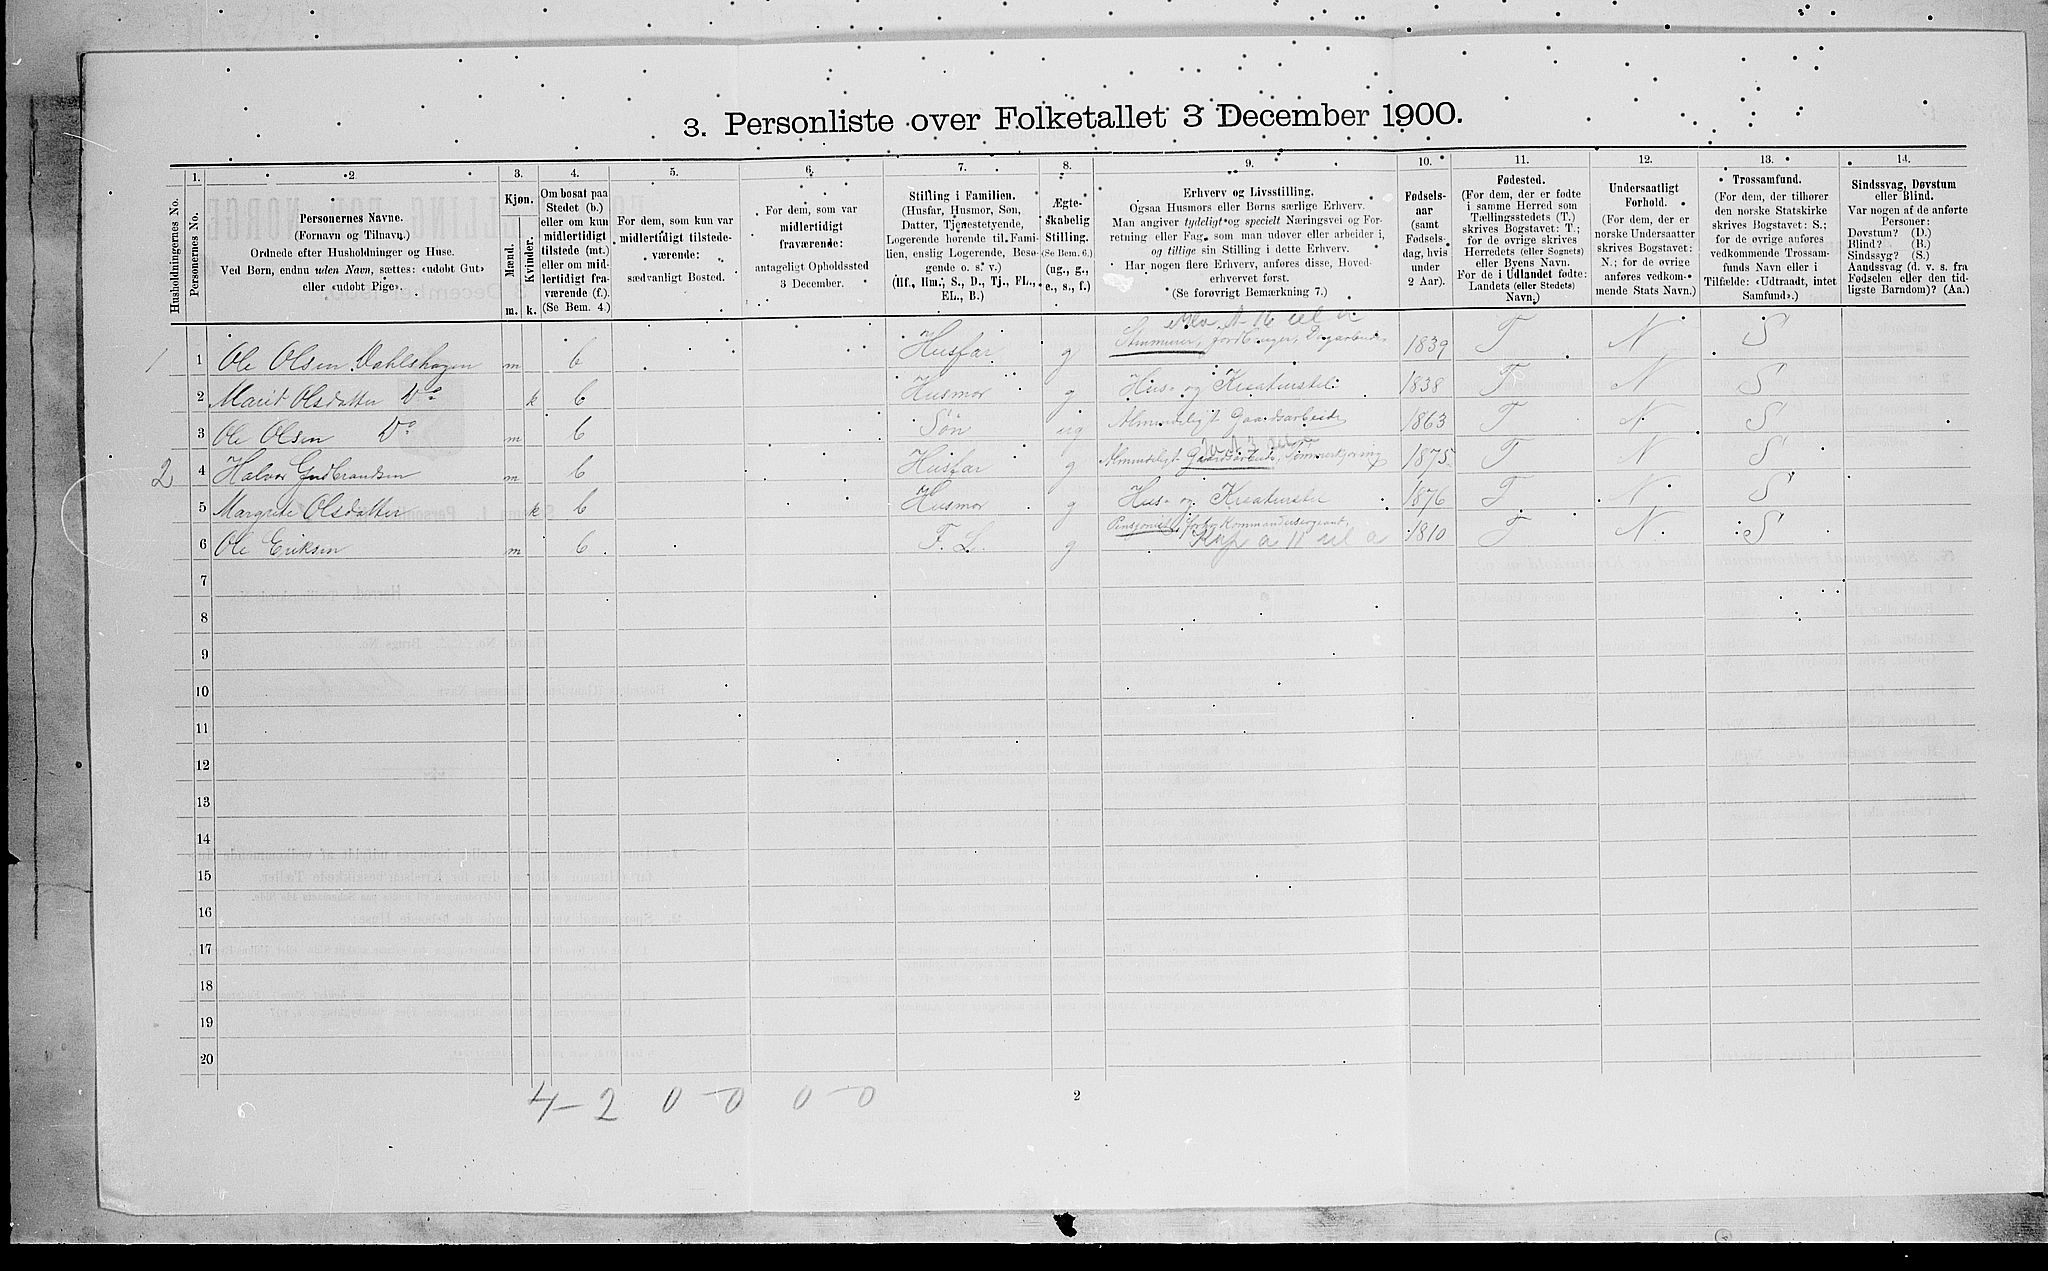 3. Personliste over Folketallet 3 December 1900.
Husholdningernes No.
1.
Personernes No.
2.
Personernes Navne.
(Fornavn og Tilnavn.)
Ordnede efter Husholdninger og Huse.
Ved Børn, endnu uden Navn, sættes: «udøbt Gut»
eller «udøbt Pige».
3.
Kjøn.
Mænd.
Kvinder.
m. k.
4.
Om bosat paa
Stedet (b.)
eller om kun
midlertidigt
tilstede (mt.)
eller om mid-
lertidigt fra-
værende (f.).
(Se Bem. 4.)
5.
For dem, som kun var
midlertidigt tilstede-
værende:
sædvanligt Bosted.
6.
For dem, som var
midlertidigt
fraværende:
antageligt Opholdssted
3 December.
7.
Stilling i Familien.
(Husfar, Husmor, Søn,
Datter, Tjenestetyende,
Logerende hørende til Fami-
lien, enslig Logerende, Besø-
gende o. s. v.)
(Hf., Hm., S., D., Tj., FL.,
EL., B.)
8.
Ægte-
skabelig
Stilling.
(Se Bem. 6.)
(ug., g.,
e., s., f.)
9.
Erhverv og Livsstilling.
Ogsaa Husmors eller Børns særlige Erhverv.
Man angiver tydeligt og specielt Næringsvei og For-
retning eller Fag, som man udøver eller arbeider i,
og tillige sin Stilling i dette Erhverv.
Har nogen flere Erhverv, anføres disse, Hoved-
erhvervet først.
(Se forøvrigt Bemærkning 7.)
10.
Fødsels-
aar
(samt
Fødsels-
dag, hvis
under
2 Aar).
11.
Fødested.
(For dem, der er fødte
i samme Herred som
Tællingsstedets (T.)
skrives Bogstavet: T.;
for de øvrige skrives
Herredets (eller Sognets)
eller Byens Navn.
For de i Udlandet fødte:
Landets (eller Stedets)
Navn.)
12.
Undersaatligt
Forhold.
(For dem, der er
norske Undersaatter
skrives Bogstavet:
N.; for de øvrige
anføres vedkom-
mende Stats Navn.)
13.
Trossamfund.
(For dem, der tilhører
den norske Statskirke
skrives Bogstavet: S.;
for de øvrige anføres
vedkommende Trossam-
funds Navn eller i
Tilfælde: «Udtraadt, intet
Samfund».)
14.
Sindssvag, Døvstum
eller Blind.
Var nogen af de anførte
Personer:
Døvstum? (D.)
Blind? (B.)
Sindssyg? (S.)
Aandssvag (d. v. s. fra
Fødselen eller den tid-
ligste Barndom)? (Aa.)
1 1 Ole Olsen Dahlshagen m b Husfar g jordbruger, Dagarbeider 1839 T N S
2 Marit Olsdatter Do k b Husmor g Hus- og Kreaturstel 1838 T N S
3 Ole Olsen Do m b Søn ug Almindeligt Gaardsarbeide 1863 T N S
2 4 Halvor Gudbrandsen m b Husfar g Almindeligt Gaardsarbeide, Tømmerkjøring 1875 T N S
5 Margrete Olsdatter k b Husmor g Hus- og Kreaturstel 1876 T N S
6 Ole Eriksen m b F. L. g Pensjonist, forhv. Kommandersergeant, 1810 T N S
7
8
9
10
11
12
13
14
15
16
17
18
19
20
4 – 2 0 – 0 0 – 0
2